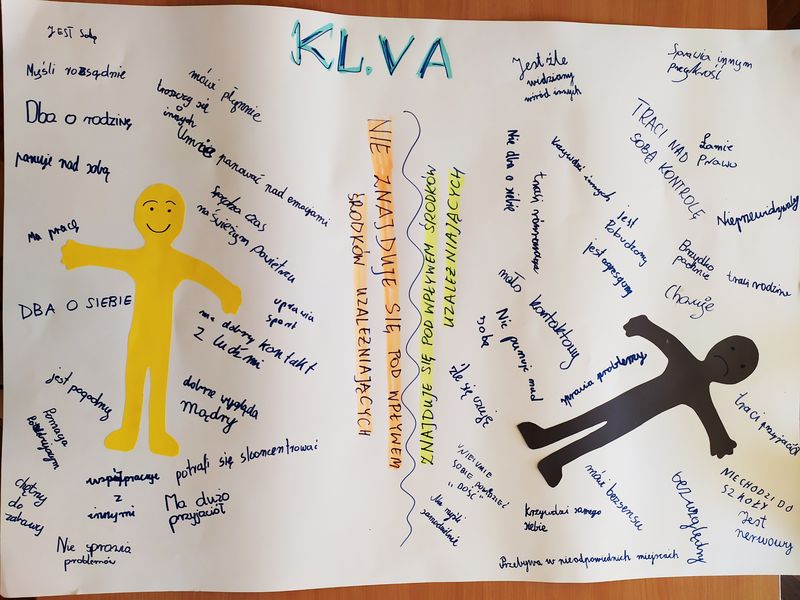 KL.VA
JEST Sobą
Myśli rozsądnie
Dba o rodzinę
panuje nad sobą
Ma pracę
DBA O SIEBIE
mówi płynnie
troszczy się
o innych
Umie panować nad emocjami
Spędza czas
na świeżym powietrzu
uprawia
sport
ma dobry kontakt
z ludźmi
jest pogodny
dobrze wygląda
mądry
Pomaga
potrafi się skoncentrować
współpracuje
z
innymi
Ma dużo
przyjaciół
chętny
do
zabawy
Nie sprawia
problemów
NIE ZNAJDUJE SIĘ POD WPŁYWEM
ŚRODKÓW UZALEŻNIAJĄCYCH
ZNAJDUJE SIĘ POD WPŁYWEM ŚRODKÓW
UZALEŻNIAJĄCYCH
Jest źle
widziany
wśród innych
Sprawia innym
przykrość
TRACI NAD
SOBĄ KONTROLĘ
Łamie
Prawo
Nie dba o siebie
traci równowagę
Krzywdzi innych
jest
Pobudzony
jest agresywny
Nieprzewidywalny
Brzydko
pachnie
traci rodzinę
Choruje
mało
kontaktowy
Nie panuje nad
sobą
sprawia problemy
źle się czuje
traci przyjaciół
UNIE UMIE
SOBIE POWIEDZIEĆ
"DOŚĆ"
Nie myśli
samodzielnie
mówi bezsensu
Krzywdzi samego
siebie
bezwzględny
NIECHODZI DO
SZKOŁY
Jest
nerwowy
Przebywa w nieodpowiednich miejscach